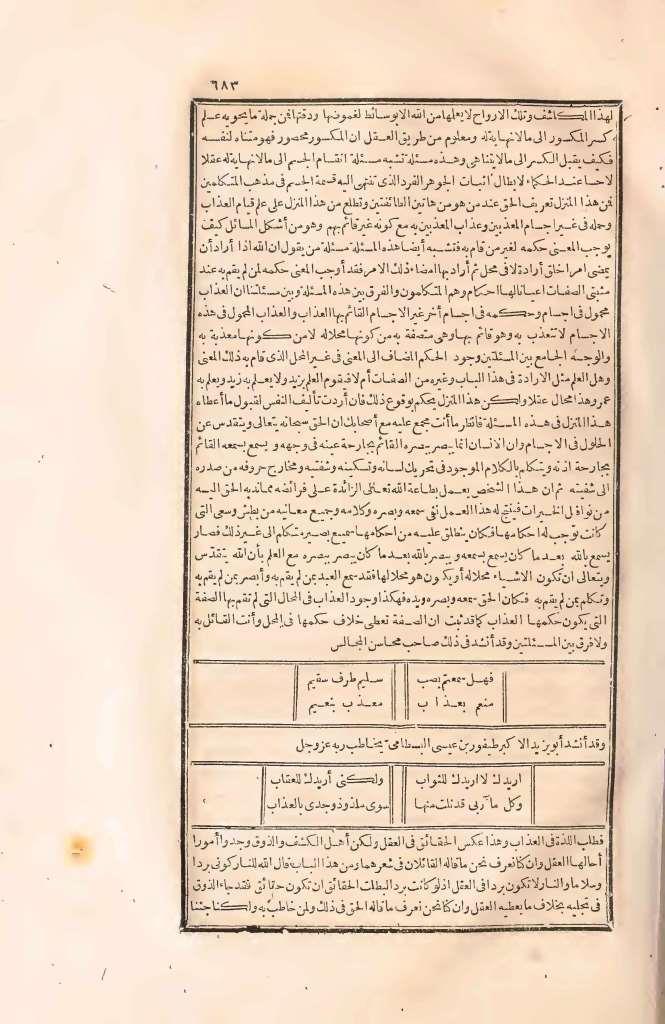 ٦٨٣
لهذا المكاشف وتلك الارواح لا يعلمها من الله الا بوسائط لغموضها ودقتها فمن جملة ما يحويه علم
كسر المكسور الى ما لا نهاية له ومعلوم من طريق العقل ان المكسور محصور فهو متناه لنفسه
فكيف يقبل الكسر الى ما لا يتناهى وهذه مسئلة تشبه مسئلة انقسام الجسم الى ما لا نهاية له عقلا
لا حسا عند الحكماء لابطال اثبات الجوهر الفرد الذى تنتهى اليه قسمة الجسم فى مذهب المتكلمين
فمن هذا المنزل تعريف الحق عند من هو من هاتين الطائفتين وتطلع من هذا المنزل على علم قيام العذاب
وحمله فى غير اجسام المعذبين وعذاب المعذبين به مع كونه غير قائم بهم وهو من أشكل المسائل كيف
يوجب المعنى حكمه لغير من قام به فتشبه أيضا هذه المسئلة مسئلة من يقول ان الله اذا أراد أن
يمضى امرا خلق أرادة لا فى محل ثم أراد بها امضاء ذلك الامر فقد أوجب المعنى حكمه لمن لم يقم به عند
مثبتى الصفات اعيانا لها احكام وهم المتكلمون والفرق بين هذه المسئلة وبين مسئلتنا ان العذاب
محمول فى اجسام وحكمه فى اجسام أخر غير الاجسام القائم بها العذاب والعذاب المحمول فى هذه
الاجسام لا تتعذب به وهو قائم بها وهى متصفة به من كونها محلا له لا من كونها معذبة به
والوجه الجامع بين المسئلتين وجود الحكم المضاف الى المعنى فى غير المحل الذى قام به ذلك المعنى
وهل العلم مثل الارادة فى هذا الباب وغيره من الصفات أم لا فيقوم العلم بزيد ولا يعلم به زيد ويعلم به
عمرو وهذا محال عقلا ولكن هذا المنزل يحكم بوقوع ذلك فان أردت تأليف النفس لقبول ما أعطاه
هذا المنزل فى هذه المسئلة فانظر ما أنت مجمع عليه مع أصحابك ان الحق سبحانه يتعالى ويتقدس عن
الحلول فى الاجسام وان الانسان انما يبصر ببصره القائم بجارحة عينه فى وجهه ويسمع بسمعه القائم
بجارحة اذنه ويتكلم بالكلام الموجود فى تحريك لسانه وتسكينه وشفتيه ومخارج حروفه من صدره
الى شفتيه ثم ان هذا الشخص يعمل بطاعة الله تعالى الزائدة على فرائضه مما ندبه الحق اليه
من نوافل الخيرات فينتج له هذا العمل نفى سمعه وبصره وكلامه وجميع معانيه من بطش وسعى التى
كانت توجب له احكامها فكان ينطلق عليه من احكامها سميع بصير متكلم الى غير ذلك فصار
يسمع بالله بعد ما كان يسمع بسمعه ويبصر بالله بعد ما كان يبصر ببصره مع العلم بأن الله يتقدس
ويتعالى ان تكون الاشياء محلا له أو يكون هو محلا لها فقد سمع العبد بمن لم يقم به وأبصر بمن لم يقم به
وتكلم بمن لم يقم به فكان الحق سمعه وبصره ويده فهكذا وجود العذاب فى المحال التى لم تقم بها الصفة
التى يكون حكمها العذاب كما قد ثبت ان الصفة تعطى خلاف حكمها فى المحل وأنت القائل به
ولا فرق بين المسئلتين وقد أنشد فى ذلك صاحب محاسن المجالس
فهل سمعتم بصب سليم طرف سقيم
منعم بعذاب معذب بنعيم
وقد أنشد أبو يزيد الاكبر طيفور بن عيسى البسطامى يخاطب ربه عز وجل
اريدك لا اريدك للثواب ولكنى أريدك للعقاب
وكل مآربى قد نلت منها سوى ملذوذ وجدى بالعذاب
فطلب اللذة فى العذاب وهذا عكس الحقائق فى العقل ولكن أهل الكشف والذوق وجدوا أمورا
أحالها العقل وان كنا نعرف نحن ما قاله القائلان فى شعرهما ومن هذا الباب قال الله للنار كونى بردا
وسلاما والنار لا تكون بردا فى العقل اذ لو كانت بردا لبطلت الحقائق ان تكون حقائق فقد جاء الذوق
فى تجليه بخلاف ما يعطيه العقل وان كنا نحن نعرف ما قاله الحق فى ذلك ولمن خاطب به ولكنا جئنا